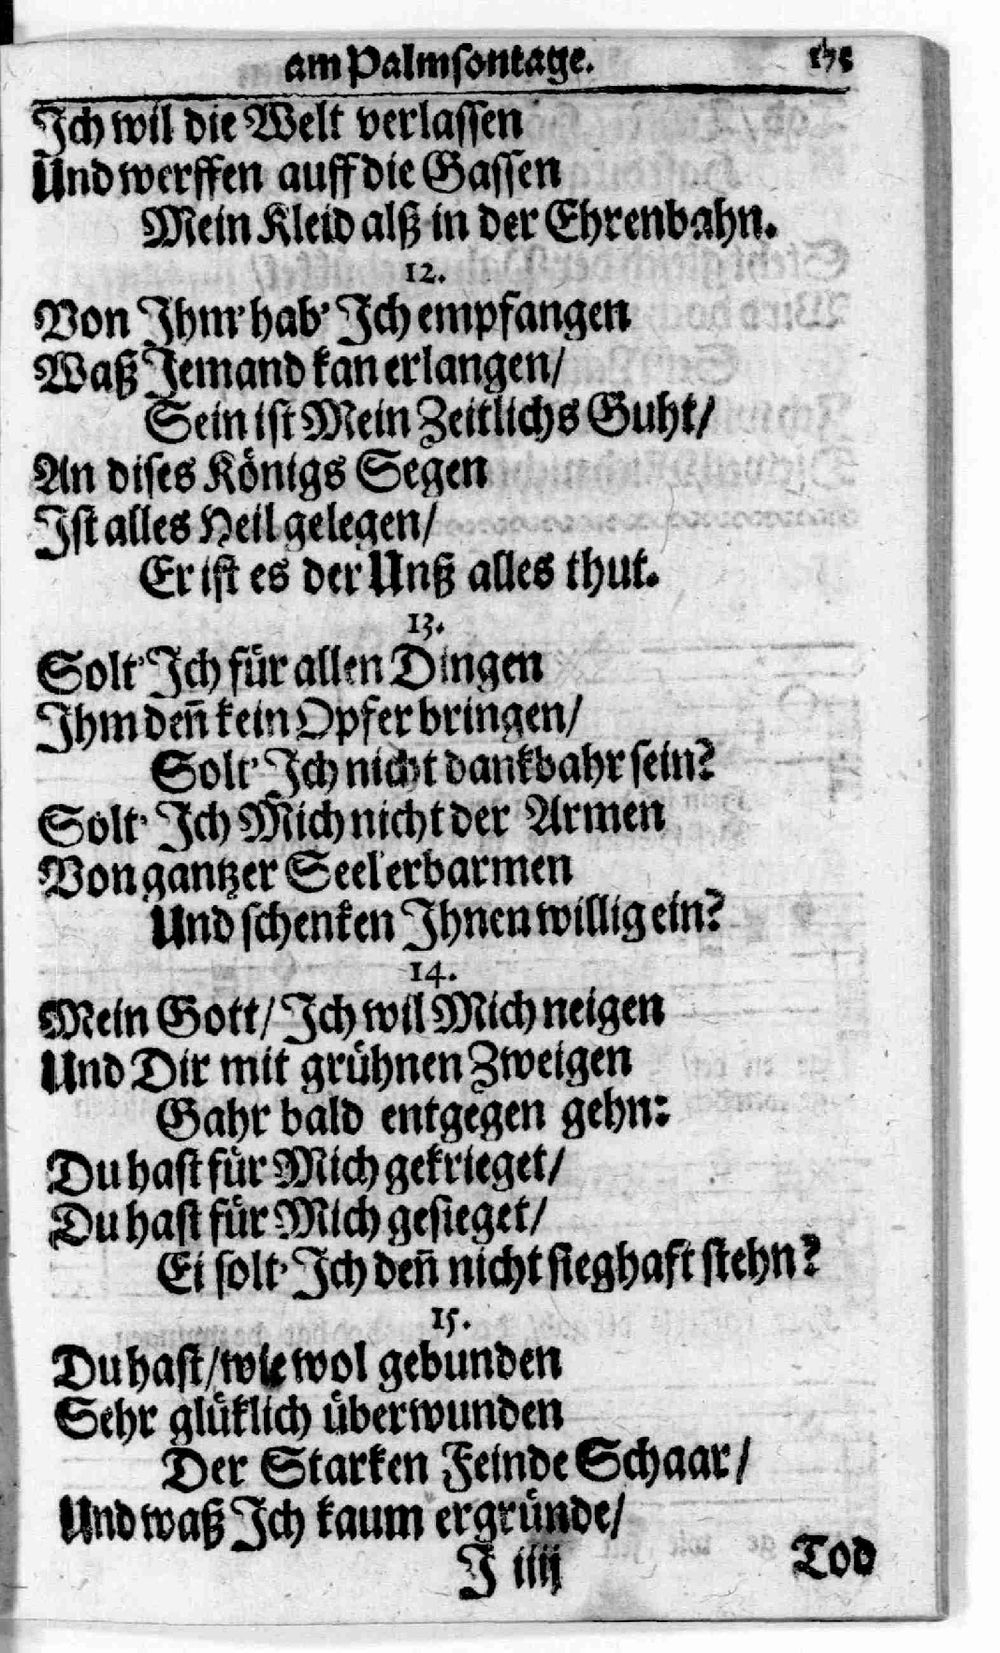 am Palmsontage.
Ich wil die Welt verlassen
Und werffen auff die Gassen
Mein Kleid alß in der Ehrenbahn.
12.
Von Ihm' hab' Ich empfangen
Waß Jemand kan erlangen/
Sein ist Mein Zeitlichs Guht/
An dises Königs Segen
Ist alles Heil gelegen/
Er ist es der Unß alles thut.
13.
Solt' Ich für allen Dingen
Ihm deñ kein Opfer bringen/
Solt' Ich nicht dankbahr sein?
Solt' Ich Mich nicht der Armen
Von gantzer Seel' erbarmen
Und schenken Ihnen willig ein?
14.
Mein Gott/ Ich wil Mich neigen
Und Dir mit grühnen Zweigen
Gahr bald entgegen gehn:
Du hast für Mich gekrieget/
Du hast für Mich gesieget/
Ei solt' Ich deñ nicht sieghaft stehn?
15.
Du hast/ wie wol gebunden
Sehr glüklich überwunden
Der Starken Feinde Schaar/
Und waß Ich kaum ergründe/
J iiij
Tod